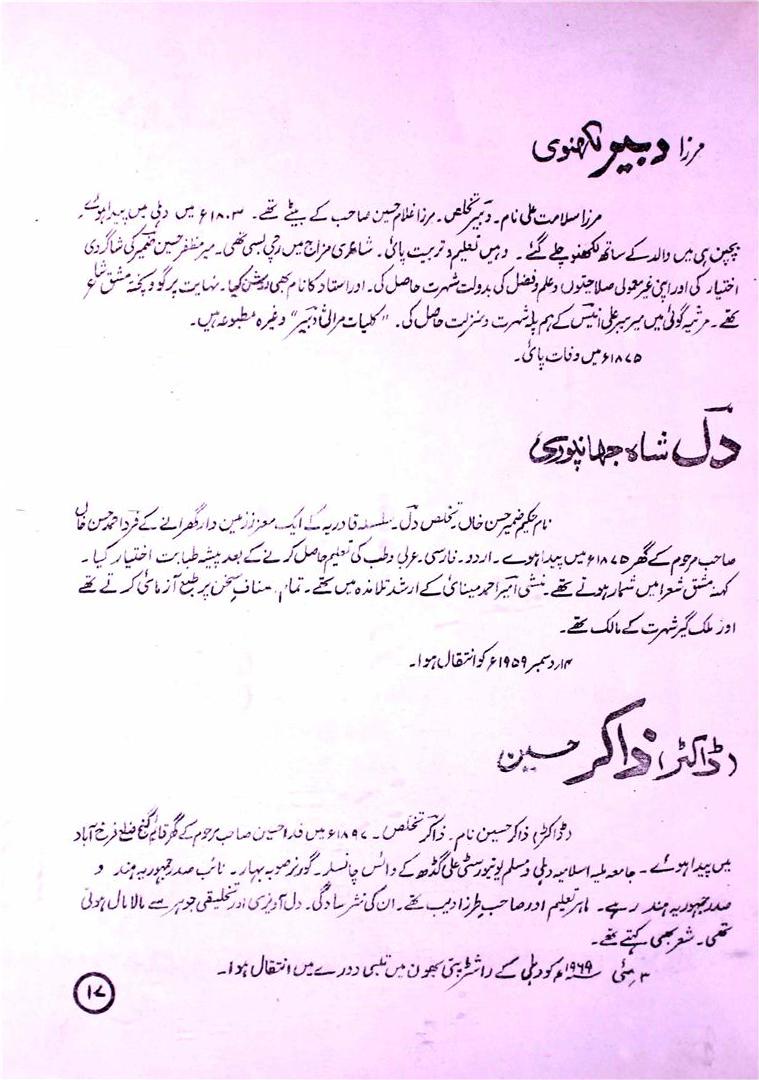 مرزا دبیر لکھنوی
مرزا سلامت علی نام۔ دبیر تخلص۔ مرزا غلام حسین صاحب کے بیٹے تھے۔ ۱۸۰۳ء میں دہلی میں پیدا ہوئے۔
بچپن ہی میں والد کے ساتھ لکھنو چلے گئے۔ وہیں تعلیم و تربیت پائی۔ شاعری مزاج میں رچی بسی تھی۔ میر مظفر حسین ضمیر کی شاگردی
اختیار کی اور اپنی غیر معمولی صلاحیتوں و علم و فضل کی بدولت شہرت حاصل کی۔ اور استاد کا نام بھی روشن کیا۔ نہایت پرگو و پختہ مشق شاعر
تھے۔ مرثیہ گوئی میں میر ببر علی انیس کے ہم پلہ شہرت و منزلت حاصل کی۔ "کلیات مراثی دبیر" وغیرہ مطبوعہ ہیں۔
۱۸۷۵ء میں وفات پائی۔
دل شاہ جہانپوری
نام حکیم ضمیر حسن خاں۔ تخلص دل۔ سلسلہ قادریہ کے ایک معزز زمین دار گھرانے کے فرد احمد حسن خاں
صاحب مرحوم کے گھر ۱۸۷۵ء میں پیدا ہوے۔ اردو۔ فارسی۔ عربی و طب کی تعلیم حاصل کرنے کے بعد پیشہ طبابت اختیار کیا۔
کہنہ مشق شعرا میں شمار ہوتے تھے۔ منشی امیر احمد مینائی کے ارشد تلامذہ میں تھے۔ تمام اصناف سخن پر طبع آزمائی کرتے تھے
اور ملک گیر شہرت کے مالک تھے۔
۱۴؍ دسمبر ۱۹۵۹ء کو انتقال ہوا۔
(ڈاکٹر) ذاکر حسین
(ڈاکٹر) ذاکر حسین نام۔ ذاکر تخلص۔ ۱۸۹۷ء میں فدا حسین صاحب مرحوم کے گھر قائم گنج ضلع فرخ آباد
میں پیدا ہوئے۔ جامعہ ملیہ اسلامیہ دہلی و مسلم یونیورسٹی علی گڈھ کے وائس چانسلر۔ گورنر صوبہ بہار۔ نائب صدر جمہوریہ ہند و
صدر جمہوریہ ہند رہے۔ ماہر تعلیم اور صاحب طرز ادیب تھے۔ ان کی نثر سادگی۔ دل آویزی اور تخلیقی جوہر سے مالا مال ہوتی
تھی۔ شعر بھی کہتے تھے۔
۳؍ مئی ۱۹۶۹ء کو دہلی کے راشٹرپتی بھون میں قلبی دورے میں انتقال ہوا۔
۱۷